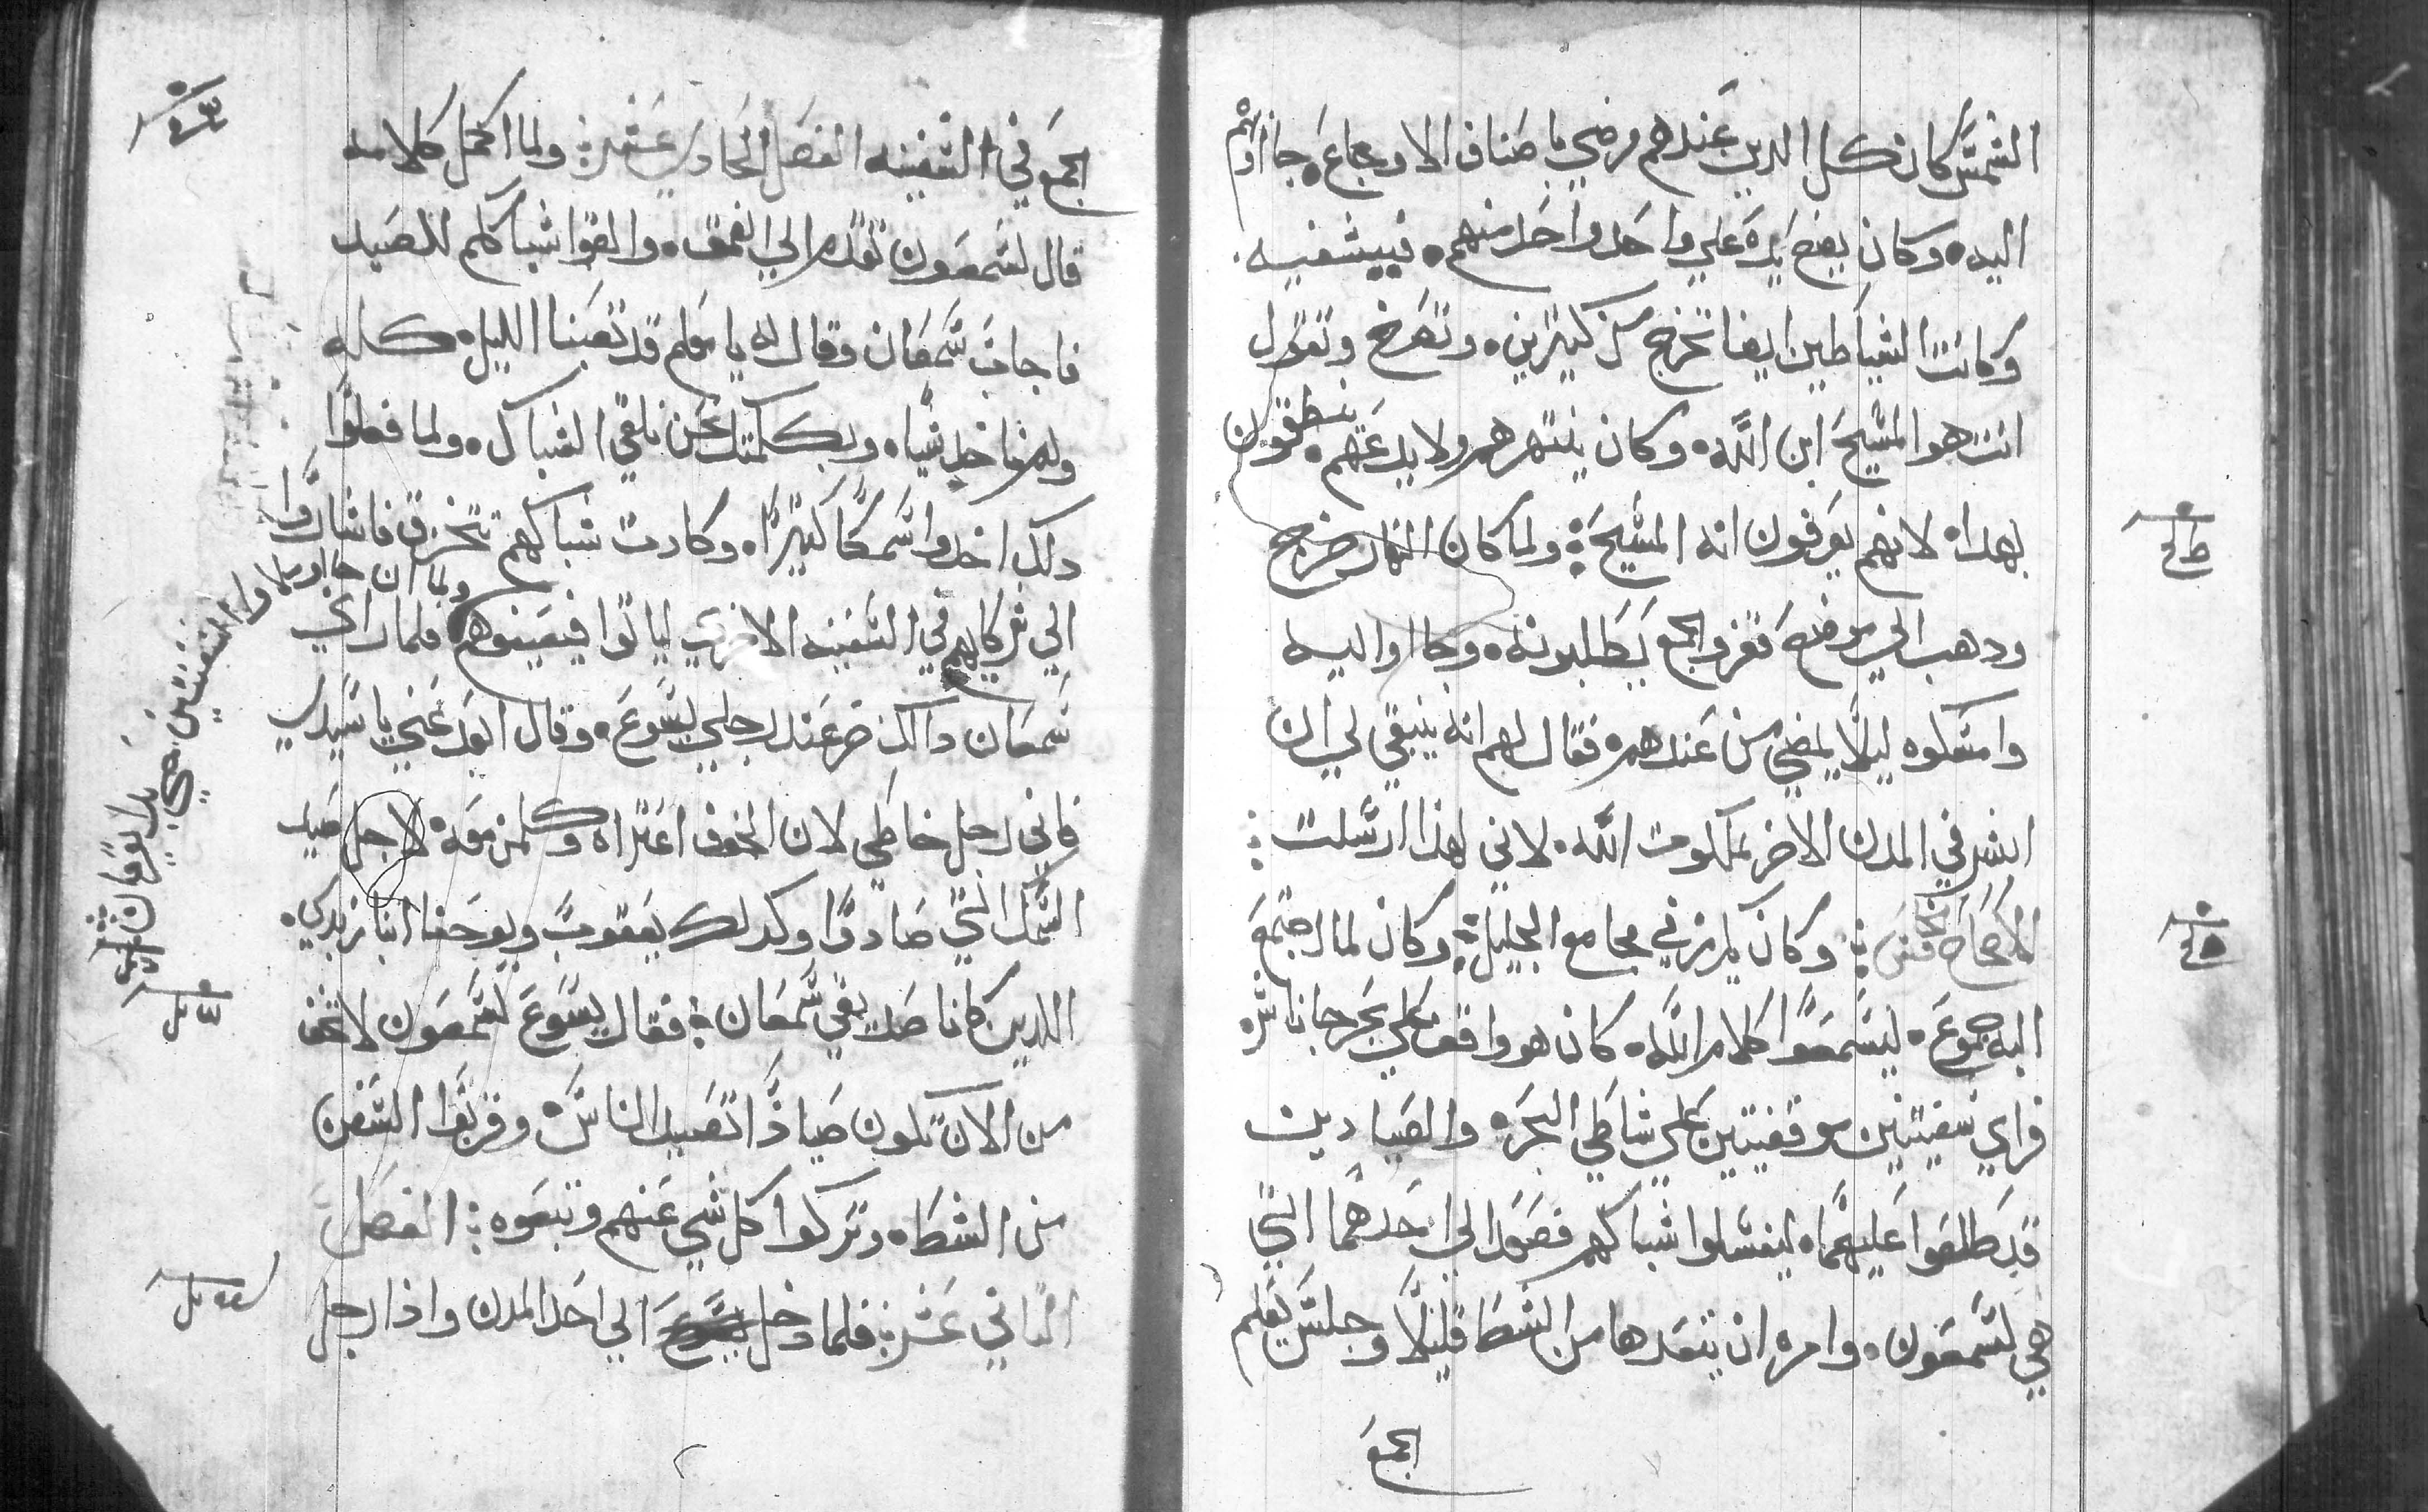 الشمس كان كل الدين عندهم مرضي باصناف الاوجاع جااوبهم
اليه وكان يضع يده علي واحد واحد منهم فييشفيه
وكانت الشياطين ايضا تخرج من كتيرين وتصرخ وتقول
انت هوا المسيح ابن الله وكان ينتهرهم ولا يدعهم ينطقون
بهدا لانهم يعرفون انه المسيح ولما كان النهار خرج
ودهب الي موضع قفر والجمع يطلبونه وجااوا اليه
وامسكوه ليلا يمضي من عندهم فقال لهم انه ينبغي لي ان
ابشر في المدن الاخر بملكوت الله لاني لهذا ارسلت
الاصحاح وكان يكرز في مجامع الجليل وكان لما اجتمع
اليه جموع ليسمعوا كلام الله كان هو واقف علي بحر جاناسر
فراي سفينتين موقفتين علي شاطي البحره والصيادين
قد طلعوا عليهما ليغسلوا شباكهم فصعد الي احدهما التي
هي لسمعون وامره ان يتعدها من الشط قليلا وجلس يعلم
الجمع
الجمع في السفينه الفصل الحادي عشر ولما اكمل كلامه
قال لسمعون تقدم الي العمق والقوا شباككم للصيد
فاجاب سمعان وقال له يا معلم قد تعبنا الليل كله
ولم ناخد شيا وبكلمتك نحن نلقي الشباك ولما فعلوا
دلك اخدوا سمكا كتيرا وكادت شباكهم تتخرق فاشاروا
الي شركايهم في السفينه الاخري لياتوا فيعينوهم فلما راي
سمعان دالك خر عند رجلي يسوع وقال ابعد عني يا سيدي
فاني رجل خاطي لان الخوف اعتراه وكلمن معه لاجل صيد
السمك التي صادوا وكدلك يعقوب ويوحنا ابنا زبدي
اللدين كانا صديقي سمعان فقال يسوع لسمعون لا تخف
من الان تكون صيادا تصيد الناس وقربوا السفن
من الشط وتركوا كل شي عنهم وتبعوه الفصل
التاني عشر فلما دخل يسوع الي احد المدن واذا رجل
ولما ان جااوا ملاوا السفينتين حتي بدا يغرقان